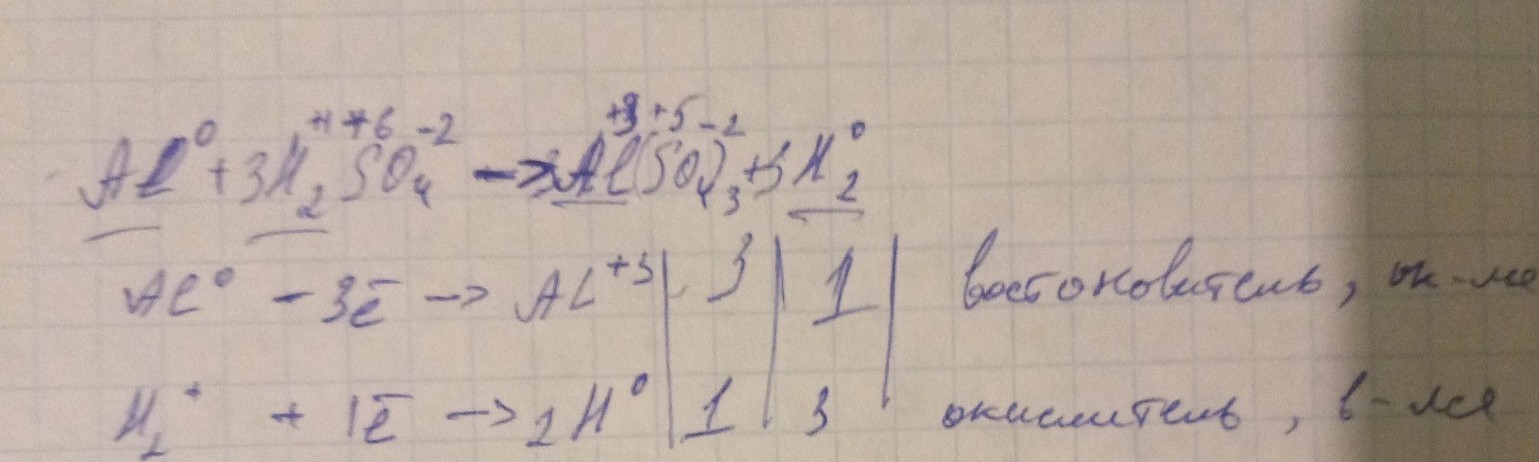 Al⁰ + 3H₂⁺¹S⁺⁶O₄⁻² → Al⁺³(S⁺⁵O₄⁻²)₃ + 3H₂⁰
Al⁰ - 3ē → Al⁺³ | 3 | 1 | востоновитель, ок-ля
H₂⁺ + 1ē → 2H⁰ | 1 | 3 окислитель, в-ля